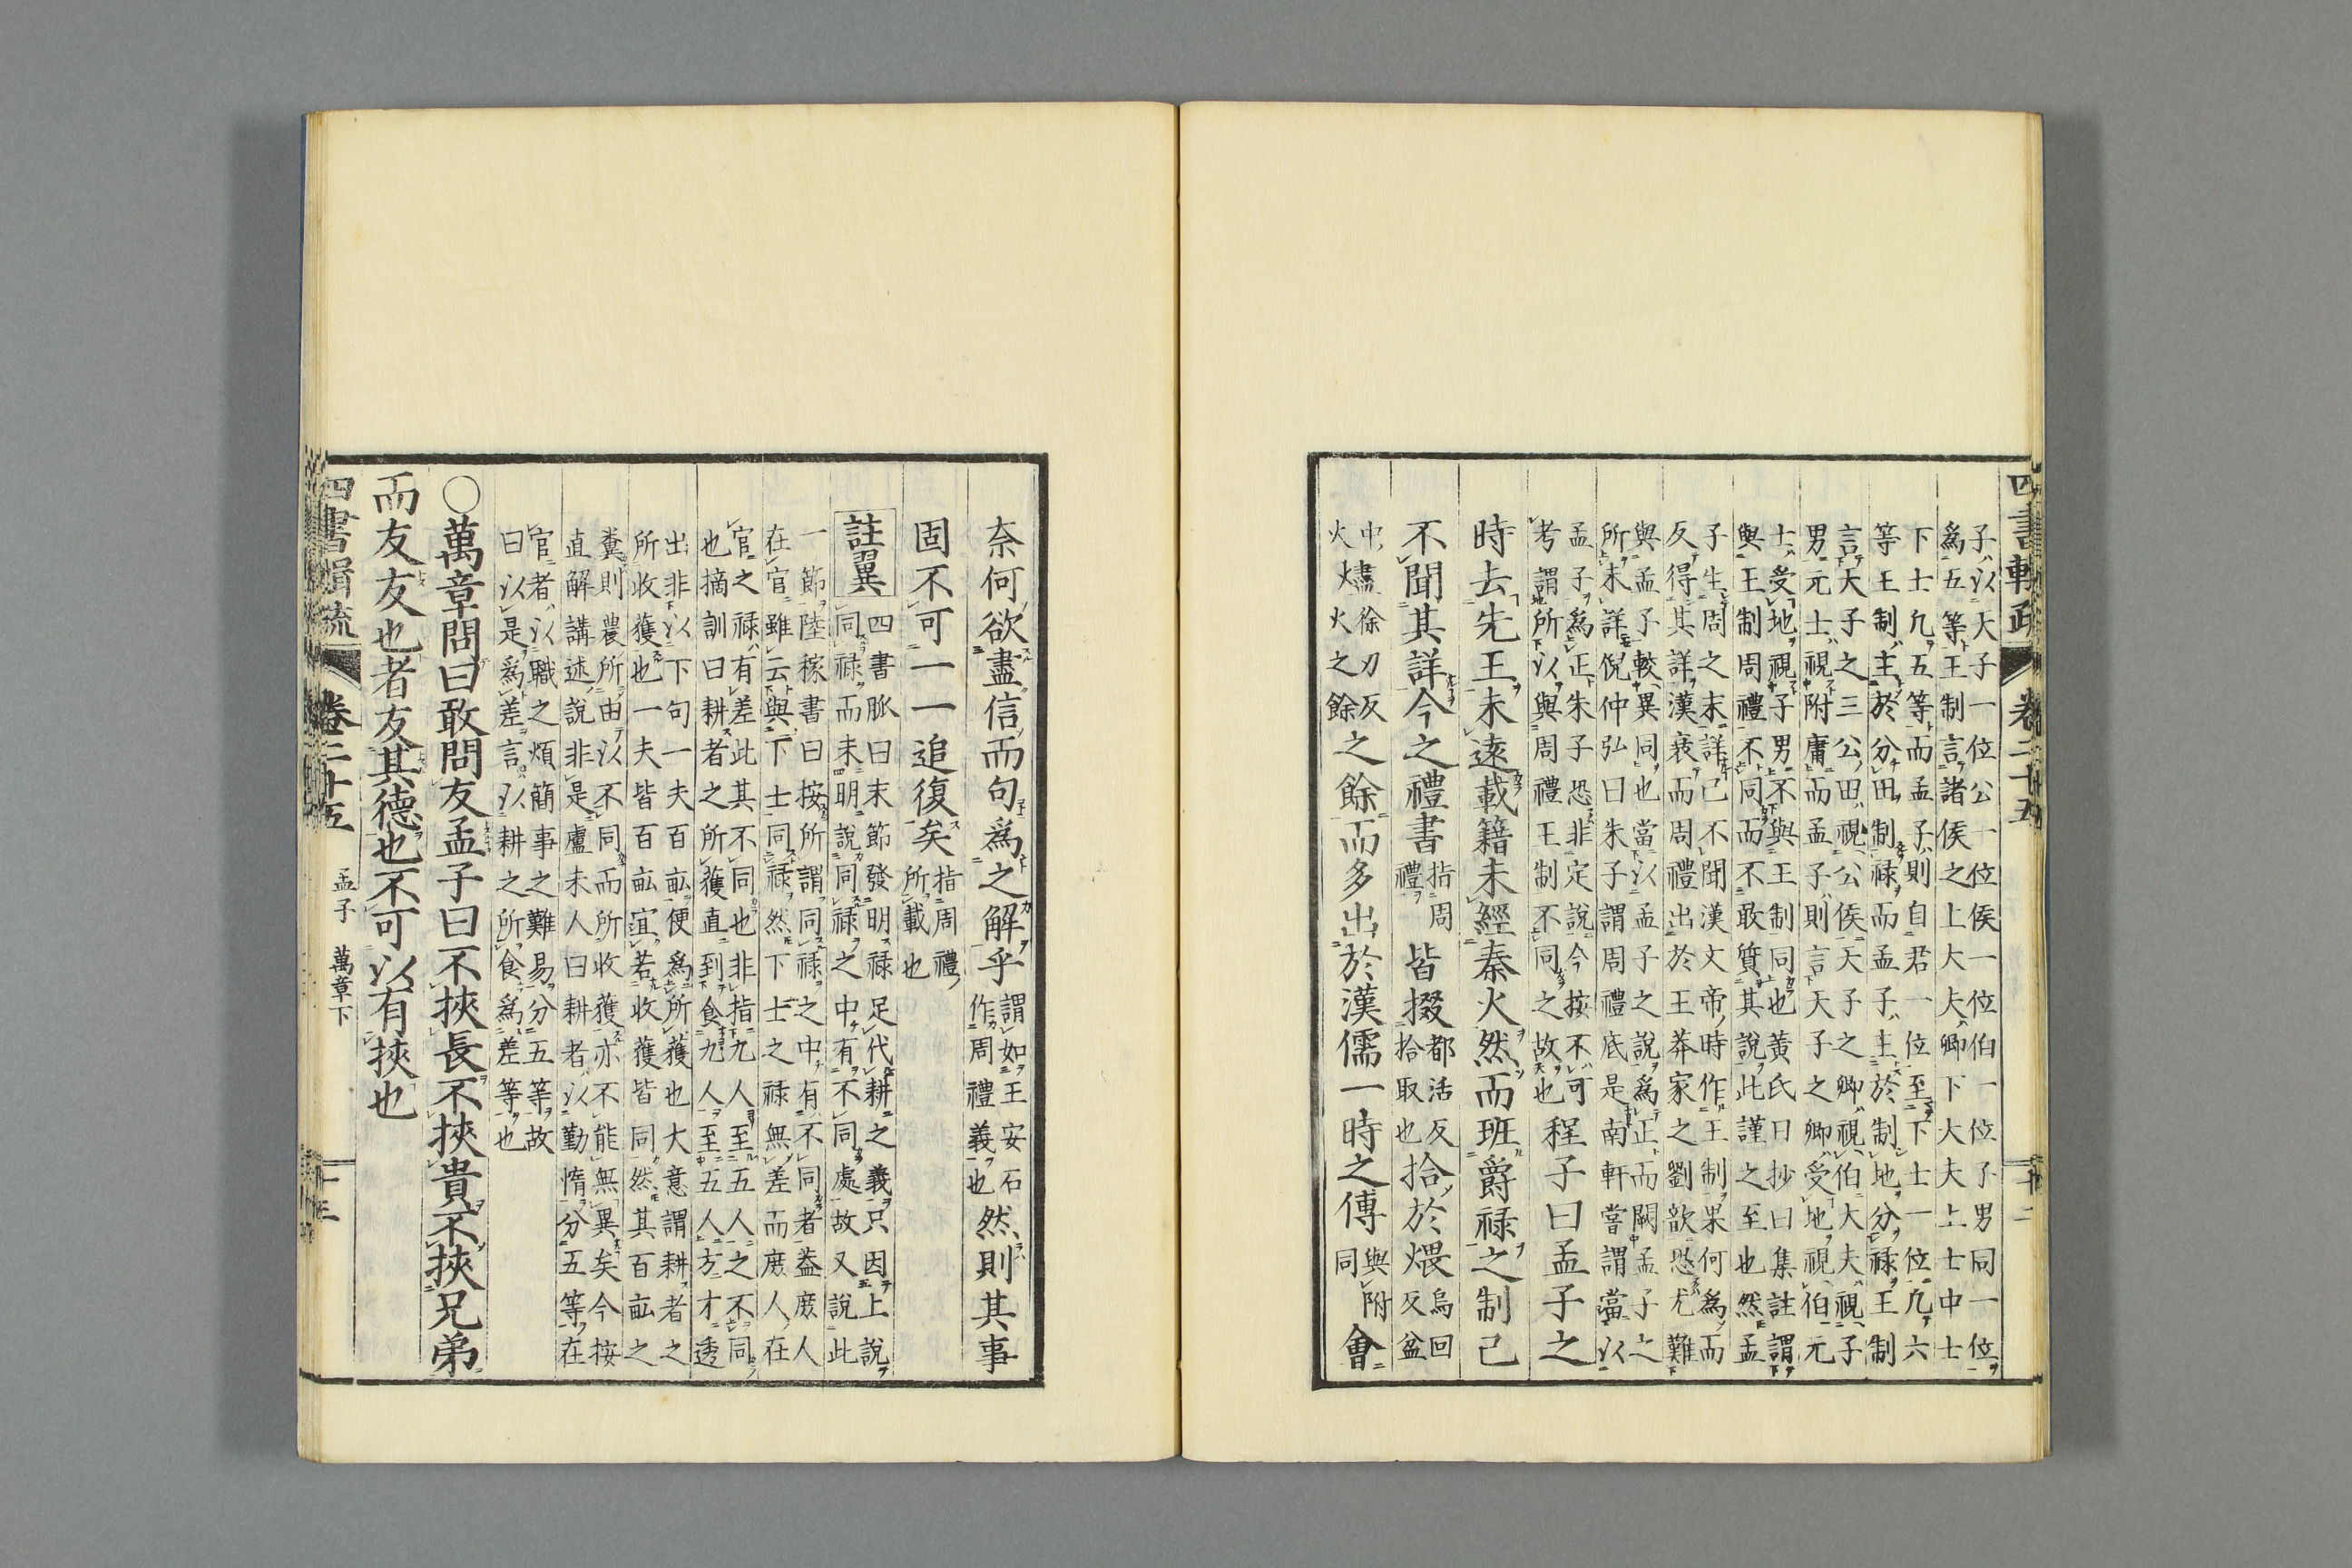 子以天子一位公一位侯一位伯一位子男同一位
爲五等王制言諸侯之上大夫卿下大夫上士中士
下士凢五等而孟子則自君一位至下士一位凢六
等王制主於分田制禄而孟子主於制地分禄王制
言天子之三公田視公侯天子之卿視伯大夫視子
男元士視附庸而孟子則言天子之卿受地視伯元
士受地視子男不與王制同也黃氏日抄曰集註謂
與王制周禮不同而不敢質其說此謹之至也然孟
子生周之末詳已不聞漢文帝時作王制果何爲而
反得其詳漢衰而周禮出於王莽家之劉歆恐尤難
與孟子較異同也當以孟子之說爲正而闕孟子之
所未詳倪仲弘曰朱子謂周禮底是南軒嘗謂當以
孟子爲正朱子恐非定說今按不可
考謂所以與周禮王制不同之故也
程子曰孟子之
時去先王未遠載籍未經秦火然而班爵禄之制已
不聞其詳今之禮書
指周
禮
皆掇
都活反
拾取也
拾於煨
烏回
反盆
中燼徐刃反
火火之餘
之餘而多出於漢儒一時之傅
與附
同
會
四書
卷二十五
十二
奈何欲盡信而句爲之解乎
謂如王安石
作周禮義也
然則其事
固不可一一追復矣
指周禮
所載也
註翼
四書脈曰末節發明禄足代耕之義只因上說
同禄而未明說同禄之中有不同處故又說此
一節陸稼書曰按所謂同禄之中有不同者益庶人
在官雖云與下士同禄然下士之禄無差而庶人在
官之禄有差此其不同也非指九人至五人之不同
也摘訓曰耕者之所獲直到食九人至五人方才透
出非以下句一夫百畝便爲所獲也大意謂耕者之
所收獲也一夫皆百畝宜若收獲皆同然其百畝之
糞則農所由以不同而所收獲亦不能無異矣今按
直解講述說非是盧未人曰耕者以勤惰分五等在
官者以職之煩簡事之難易分五等故
曰以是爲差言以耕之所食爲差等也
○萬章問曰敢問友孟子曰不挾長不挾貴不挾兄弟
而友友也者友其德也不可以有挾也
四書
卷二十五
孟子 萬章下
十三